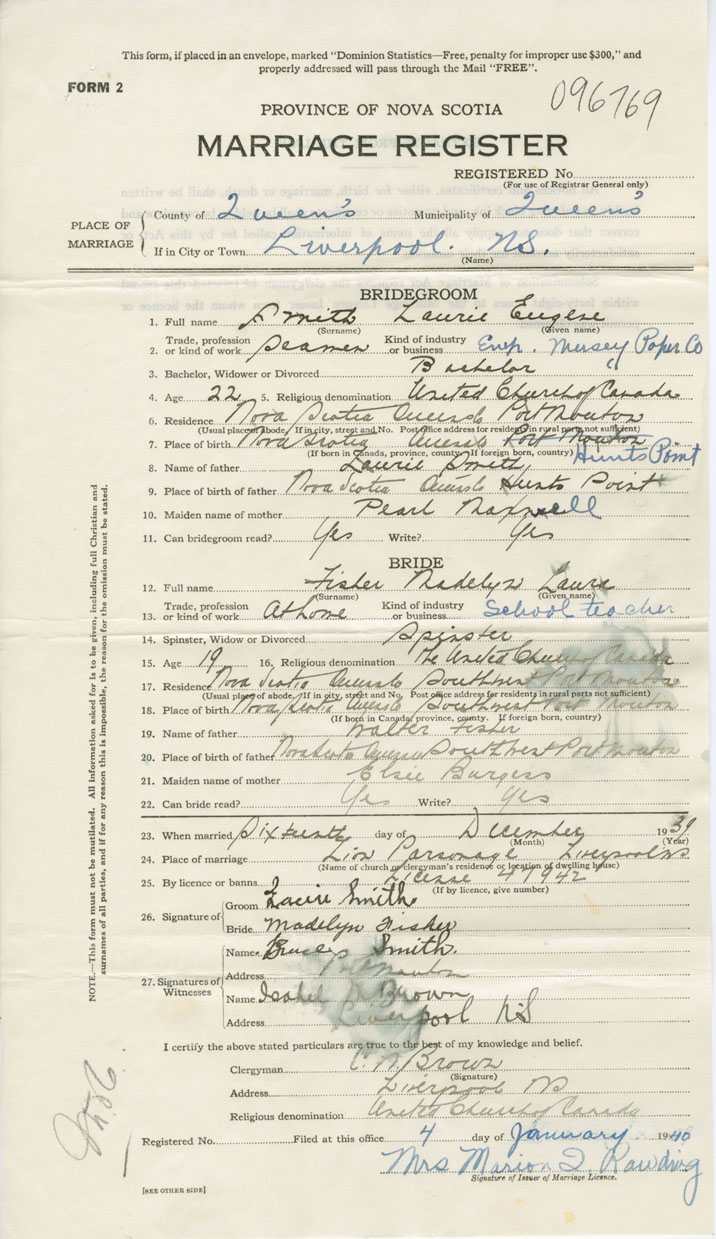 This form, if placed in an envelope, marked "Dominion Statistics—Free, penalty for improper use $300," and
properly addressed will pass through the Mail "FREE".
FORM 2
096769
PROVINCE OF NOVA SCOTIA
MARRIAGE REGISTER
REGISTERED No.
(For use of Registrar General only)
PLACE OF MARRIAGE
County of Queen's Municipality of Queen's
If in City or Town Liverpool. NS.
(Name)
BRIDEGROOM
1. Full name Smith Laurie Eugene
(Surname) (Given name)
2. Trade, profession or kind of work Seaman Kind of industry or business Emp. Mersey Paper Co
3. Bachelor, Widower or Divorced Bachelor
4. Age 22 5. Religious denomination United Church of Canada
6. Residence Nova Scotia Queens Co Port Mouton
(Usual place of abode. If in city, street and No. Post office address for residents in rural parts not sufficient)
7. Place of birth Nova Scotia Queens Co Port Mouton Hunts Point
(If born in Canada, province, county. If foreign born, country)
8. Name of father Laurie Smith
9. Place of birth of father Nova Scotia Queens Co Hunts Point
10. Maiden name of mother Pearl
11. Can bridegroom read? Yes Write? Yes
BRIDE
12. Full name Fisher Madelyn Laura
(Surname) (Given name)
13. Trade, profession or kind of work At Home Kind of industry or business School teacher
14. Spinster, Widow or Divorced Spinster
15. Age 19 16. Religious denomination The United Church of Canada
17. Residence Nova Scotia Queens Co Southwest Port Mouton
(Usual place of abode. If in city, street and No. Post office address for residents in rural parts not sufficient)
18. Place of birth Nova Scotia Queens Co Southwest Port Mouton
(If born in Canada, province, county. If foreign born, country)
19. Name of father Walter Fisher
20. Place of birth of father Nova Scotia Queens Co Southwest Port Mouton
21. Maiden name of mother Elsie Burgess
22. Can bride read? Yes Write? Yes
23. When married Sixteenth day of December 1939
(Month) (Year)
24. Place of marriage Zion Parsonage Liverpool NS
(Name of church or clergyman's residence or location of dwelling house)
25. By licence or banns License 41942
(If by licence, give number)
26. Signature of
Groom Laurie Smith
Bride Madelyn Fisher
27. Signatures of Witnesses
Name Smith.
Address Port Mouton
Name Isabel M Brown
Address Liverpool NS
I certify the above stated particulars are true to the best of my knowledge and belief.
Clergyman Brown
(Signature)
Address Liverpool NS
Religious denomination United Church of Canada
Registered No. Filed at this office 4 day of January 1940
Mrs Marion Rawding
Signature of Issuer of Marriage Licence.
[SEE OTHER SIDE]
NOTE.—This form must not be mutilated. All information asked for is to be given, including full Christian and
surnames of all parties, and if for any reason this is impossible, the reason for the omission must be stated.